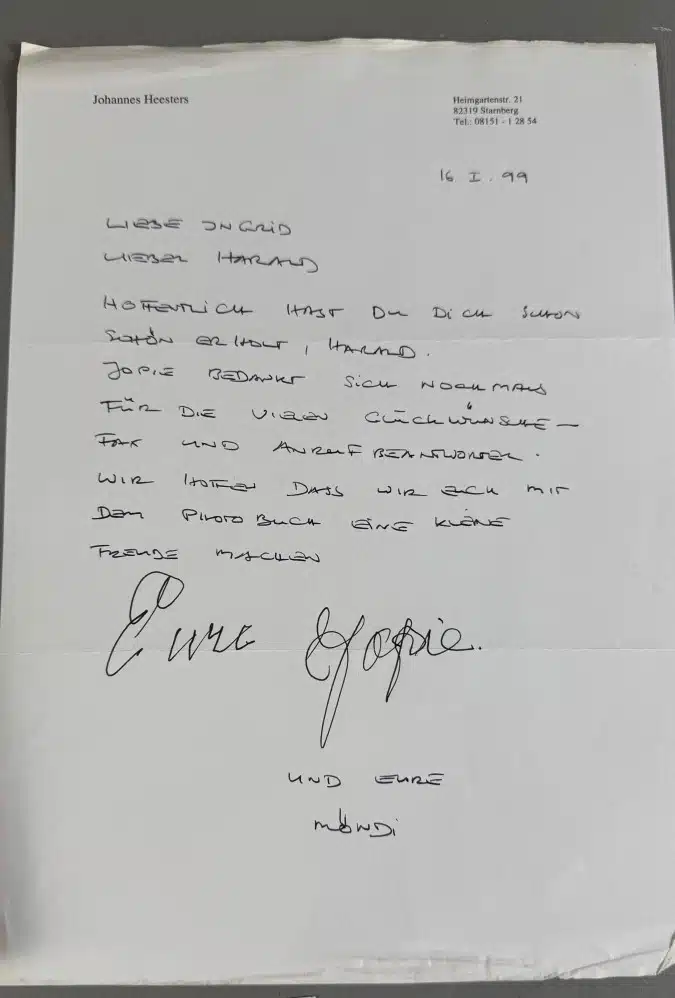 Johannes Heesters
Heimgartenstr. 21
82319 Starnberg
Tel.: 08151 - 1 28 54
16 I. 99
LIEBE INGRID
LIEBER HARALD
HOFFENTLICH HAST DU DICH SCHON
SCHÖN ERHOLT, HARALD.
JOPIE BEDANKT SICH NOCHMALS
FÜR DIE VIELEN GLÜCKWÜNSCHE –
FAX UND ANRUFBEANTWORTER.
WIR HOFFEN DASS WIR EUCH MIT
DEM PHOTOBUCH EINE KLEINE
FREUDE MACHEN
Eure Jopie.
UND EURE
MÖNDI